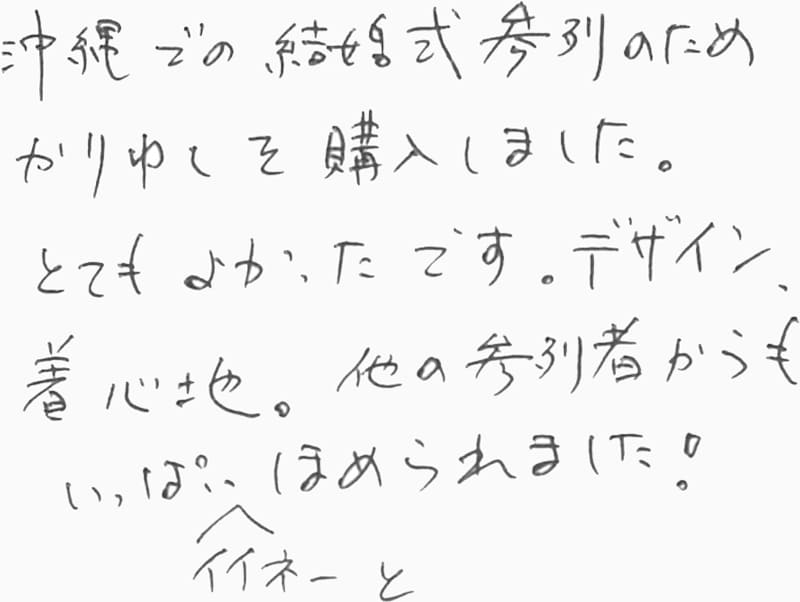 沖縄での結婚式参列のため
かりゆしを購入しました。
とてもよかったです。デザイン、
着心地。他の参列者からも
いっぱいほめられました!
イイネーと